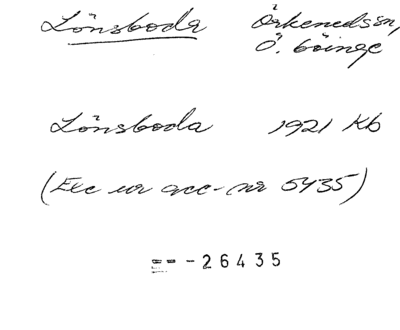 Lönsboda Örkeneds sn,
Ö. Göinge
Lönsboda 1921 Kb
(Exc ur acc-nr 5435)
== - 26435